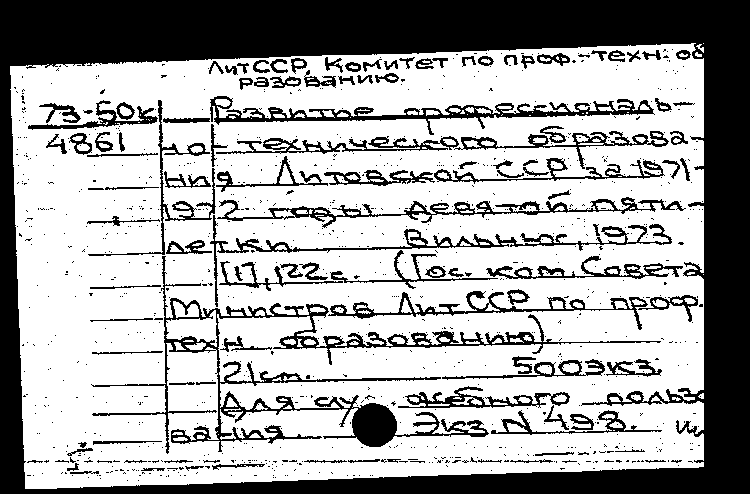 ЛитССР, Комитет по проф.-техн. об
разованию.
73-50к Развитие профессиональ-
4861 но-технического образова-
ния Литовской ССР за 1971-
1972 годы девятой пяти-
летки. Вильнюс, 1973.
[1], 122 с. (Гос. ком. Совета
Министров ЛитССР по проф.
техн. образованию).
21 см. 500 экз.
Для служебного пользо
вания. Экз. N 498.